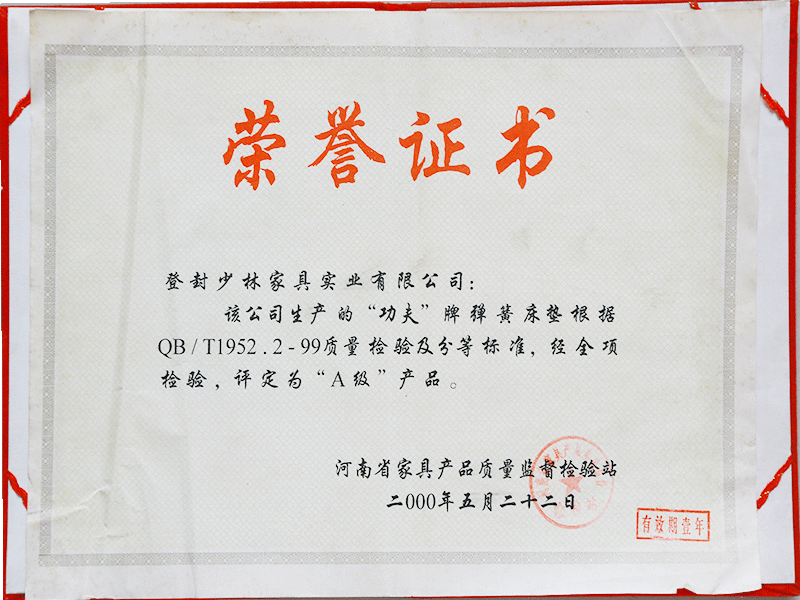 荣誉证书
登封少林家具实业有限公司：
该公司生产的“功夫”牌弹簧床垫根据
QB/T1952.2-99质量检验及分等标准，经全项
检验，评定为“A级”产品。
河南省家具产品质量监督检验站
二000年五月二十二日
有效期壹年